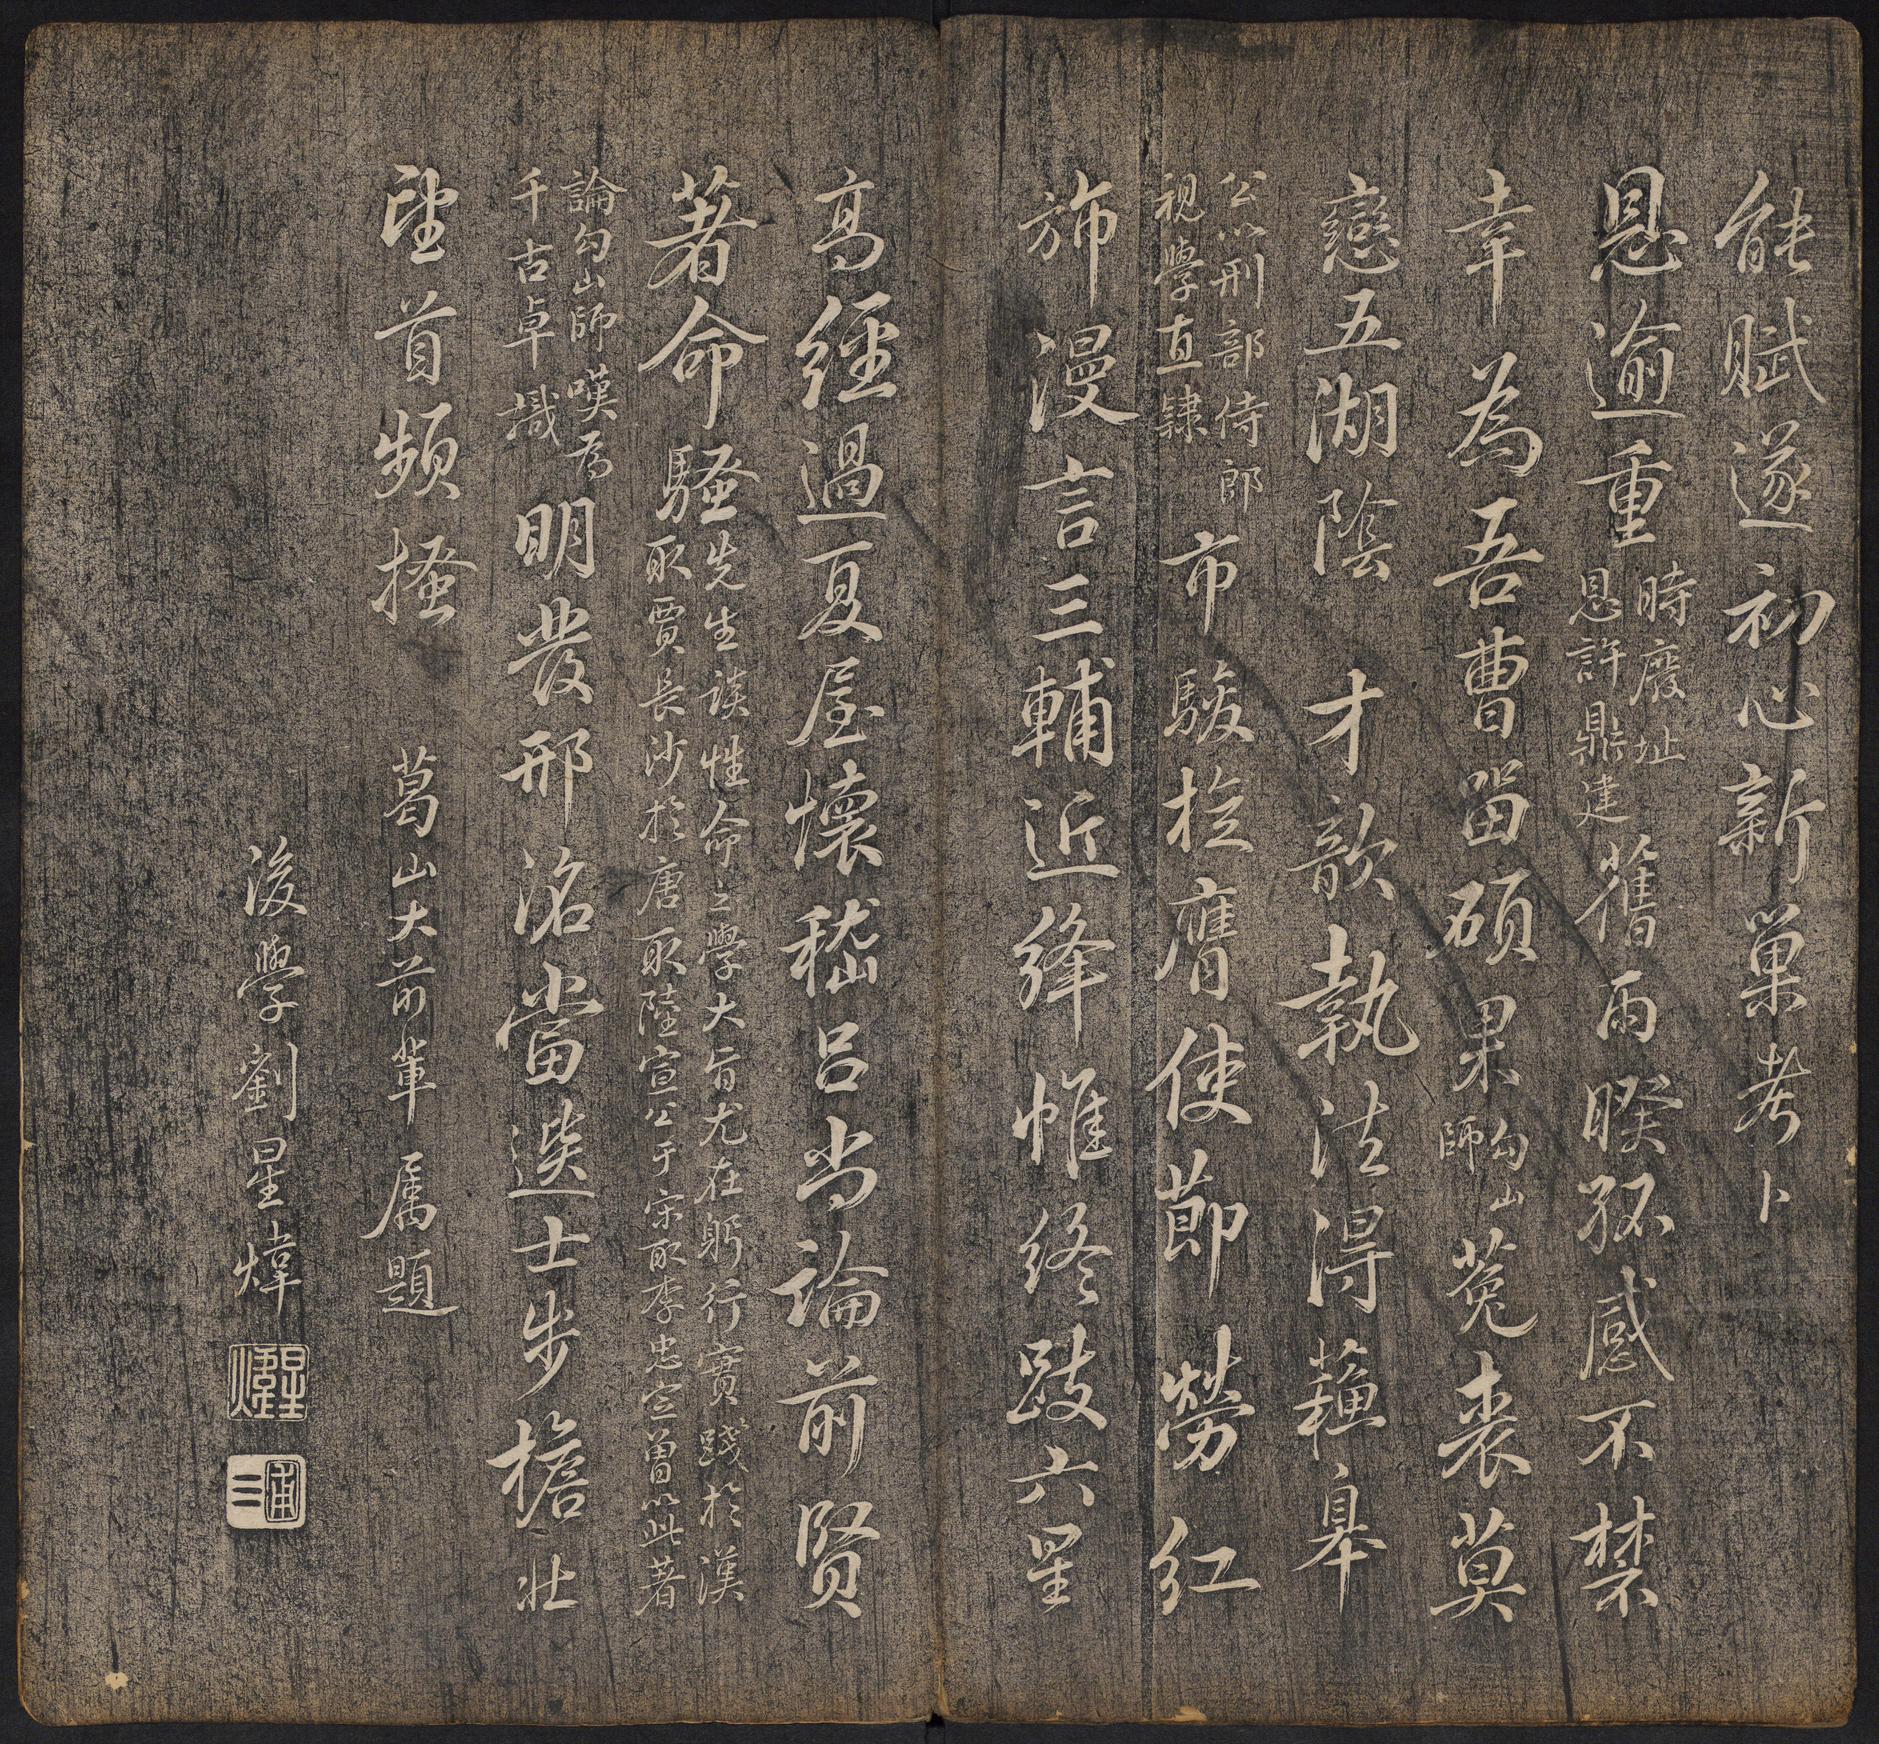 能賦遂初心新巢考卜
恩逾重
時廢址
恩許鼎建
舊雨睽孤感不禁
幸為吾曹留碩果
勾山
師
菟裘莫
戀五湖陰 才歆執法得蘓皋
公以刑部侍郎
視學直隸
市駿掄膺使節勞紅
旆漫言三輔近絳帷終跂六星
高經過夏屋懷嵇呂尚論前賢
著命騷
先生談性命之學大旨尤在躬行實踐於漢
取賈長沙於唐取陸宣公于宋取李忠定曾以此著
論勾山師嘆為
千古卓識
明發邢洺當送士步檐壯
望首頻搔
葛山大前輩屬題
後學劉星煒
星煒
圃三